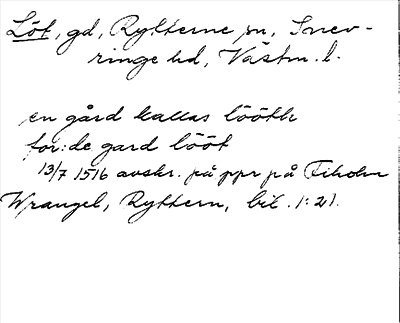 Löt, gd, Rytterne sn, Snev-
ringe hd, Västm. l.
en gård kallas lööth
for:de gard lööt
13/7 1516 avskr. på ppr på Fiholm
Wrangel, Ryttern, bil. 1:21.